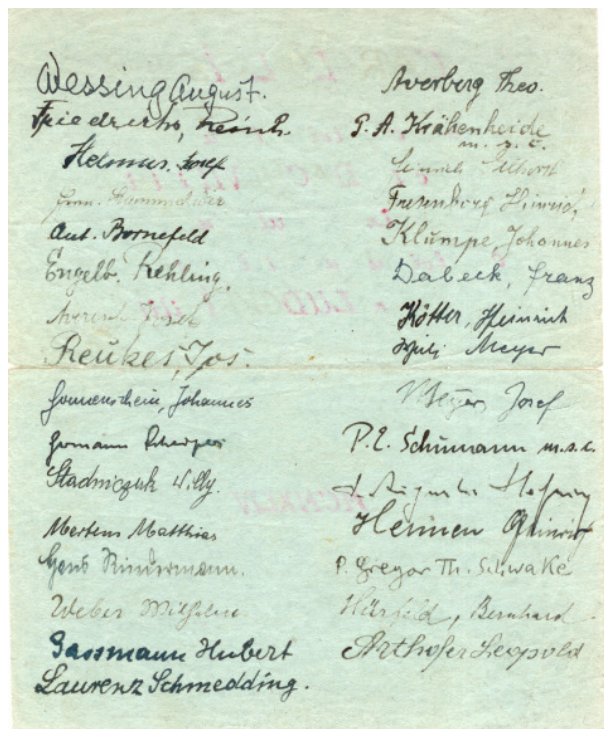 Wessing August.
Friedrichs, Reinh.
Helmus. Josef
Ant. Bornefeld
Engelb. Rehling.
Josef
Reukes, Jos.
Sonnenschein, Johannes
Hermann Scheipers
Stadniczuk Willy.
Mertens Matthias
Hans Rindermann.
Weber Wilhelm
Gassmann Hubert
Laurenz Schmedding.
Averberg Theo.
P. A. Krähenheide
m. s. c.
Fresenborg Hinrich,
Klumpe, Johannes
Dabeck, Franz
Kötter, Heinrich
Meyer
Meyer, Josef
P. E. Schümann m.s.c.
Hennen Heinrich
P. Gregor Th. Schwake
Hürfeld, Bernhard
Arthofer Leopold